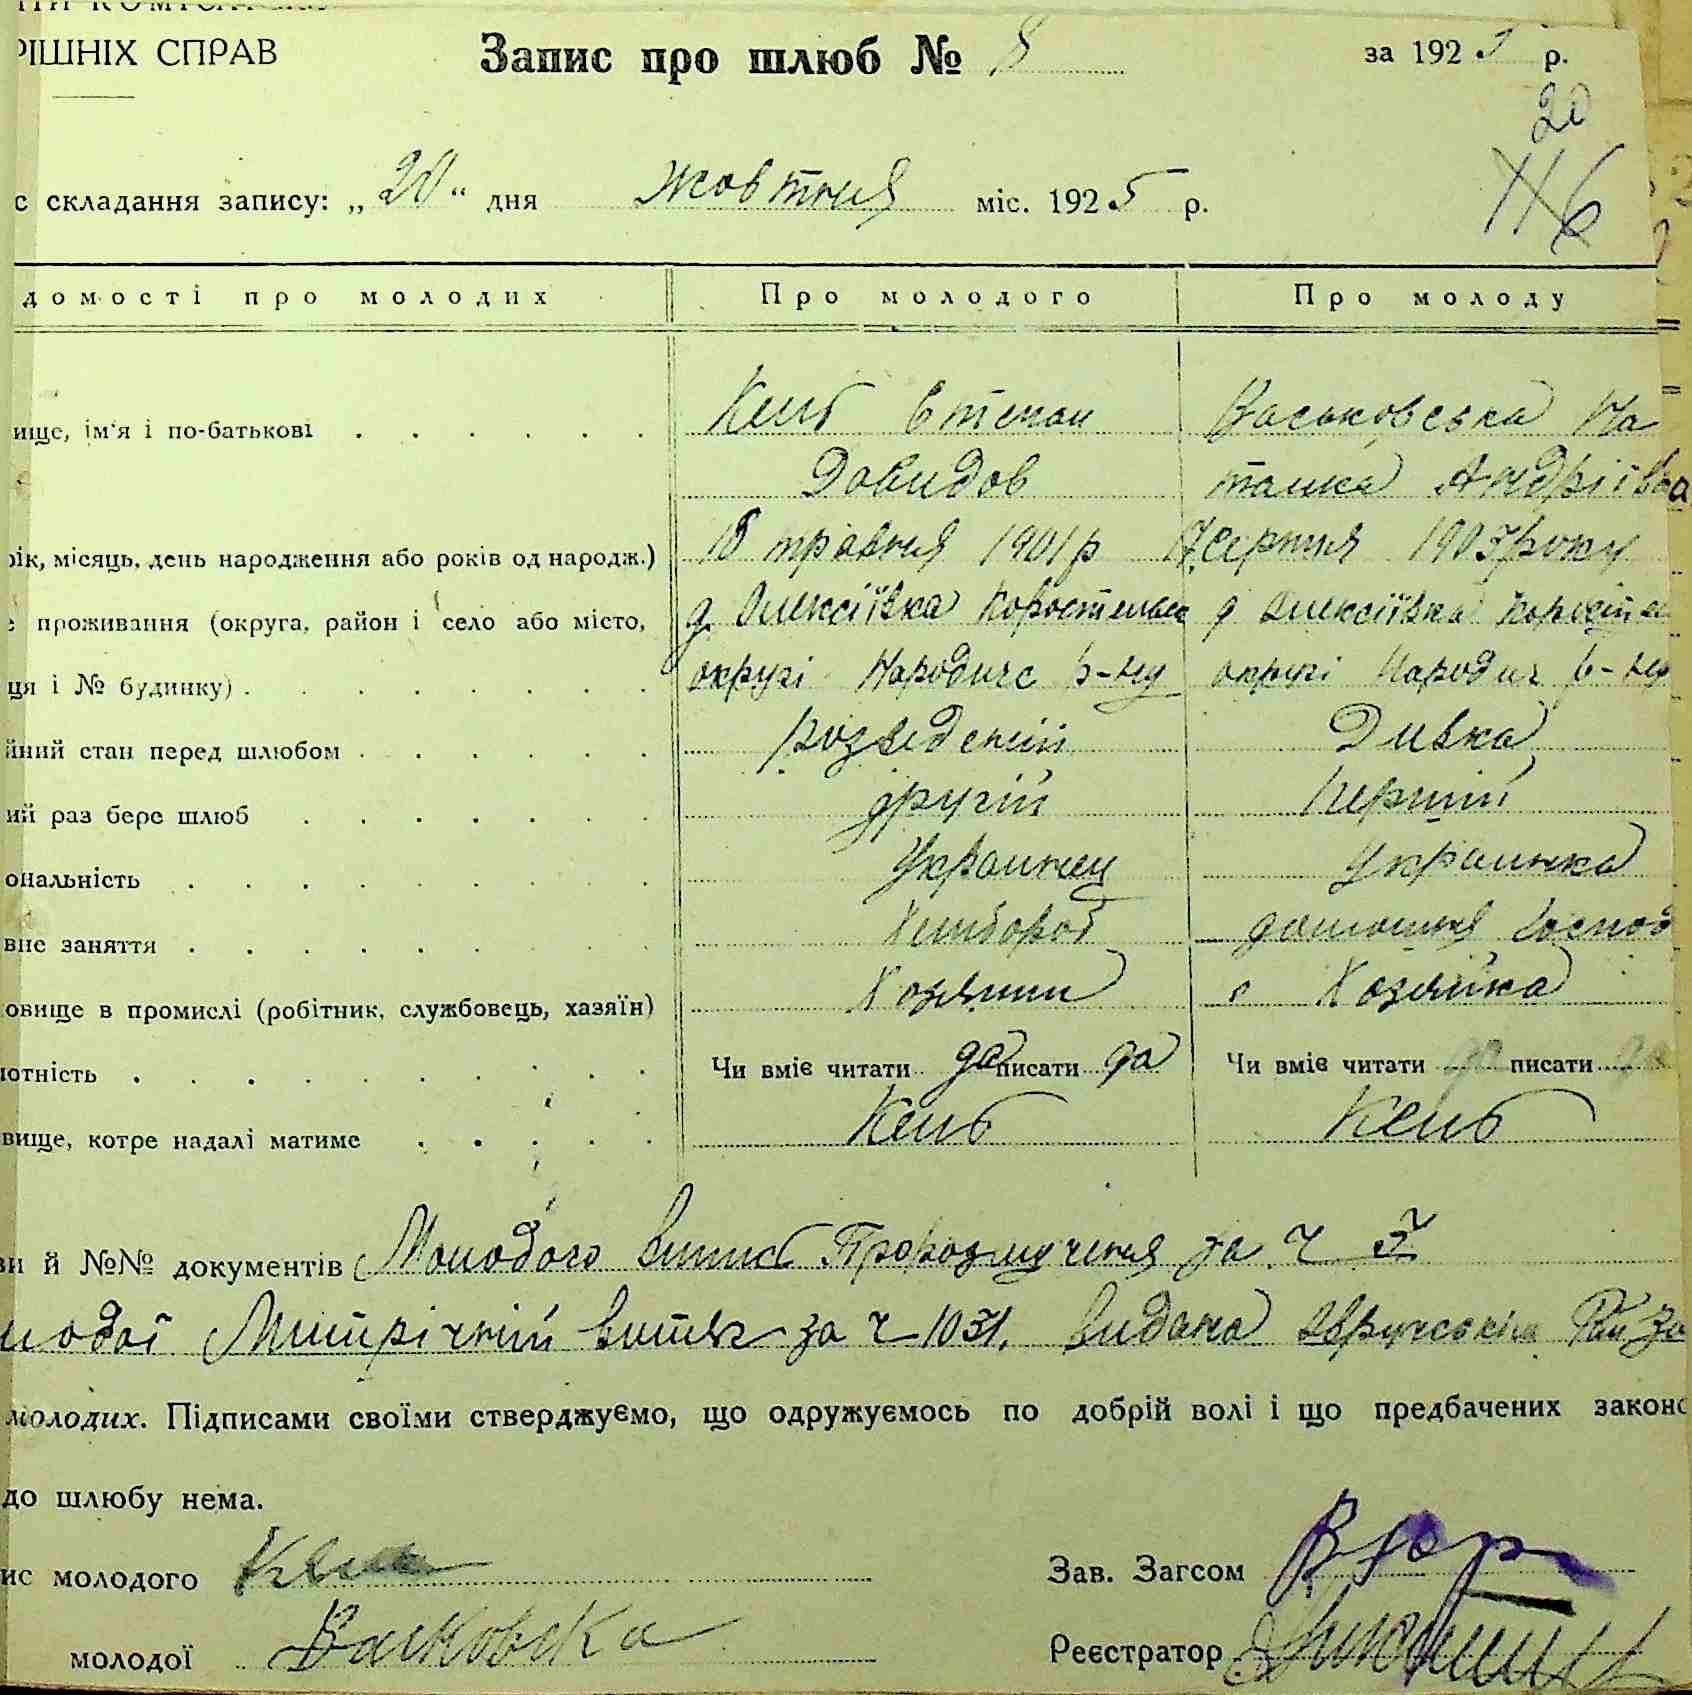 РІШНІХ СПРАВ
Запис про шлюб № 8 за 1925 р.
20
116
с складання запису: „20“ дня жовтня міс. 1925 р.
домості про молодих Про молодого Про молоду
ище, ім'я і по-батькові Кейс Степан Васьковська На
Давидов талка Андріївна
рік, місяць, день народження або років од народж.) 18 травня 1901 р 17 серпня 1905 року
проживання (округа, район і село або місто, д. Олексіївка Коростенськ д Олексіївка Коростен
ця і № будинку) округі Народичс р-ну округі Народич р-ну
йний стан перед шлюбом розведеній Дивка
ий раз бере шлюб другій Перший
ональність Украинец Украинка
вне заняття Хлибороб домашня господ
овище в промислі (робітник, службовець, хазяїн) Хозяин Хозяйка
отність Чи вміє читати да писати да Чи вміє читати да писати да
вище, котре надалі матиме Кейс Кейс
ви й №№ документів Молодого випис Пророзлученя за ч
лодої Митрічній витяг за ч 1031. видана Рай за
молодих. Підписами своїми стверджуємо, що одружуємось по добрій волі і що предбачених законо
до шлюбу нема.
ис молодого Зав. Загсом
молодої Васковска Реєстратор